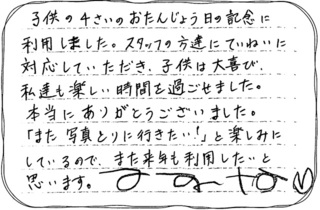 子供の4さいのおたんじょう日の記念に
利用しました。スタッフの方達にていねいに
対応していただき、子供は大喜び、
私達も楽しい時間を過ごせました。
本当にありがとうございました。
「また写真とりに行きたい!」と楽しみに
しているので、また来年も利用したいと
思います。